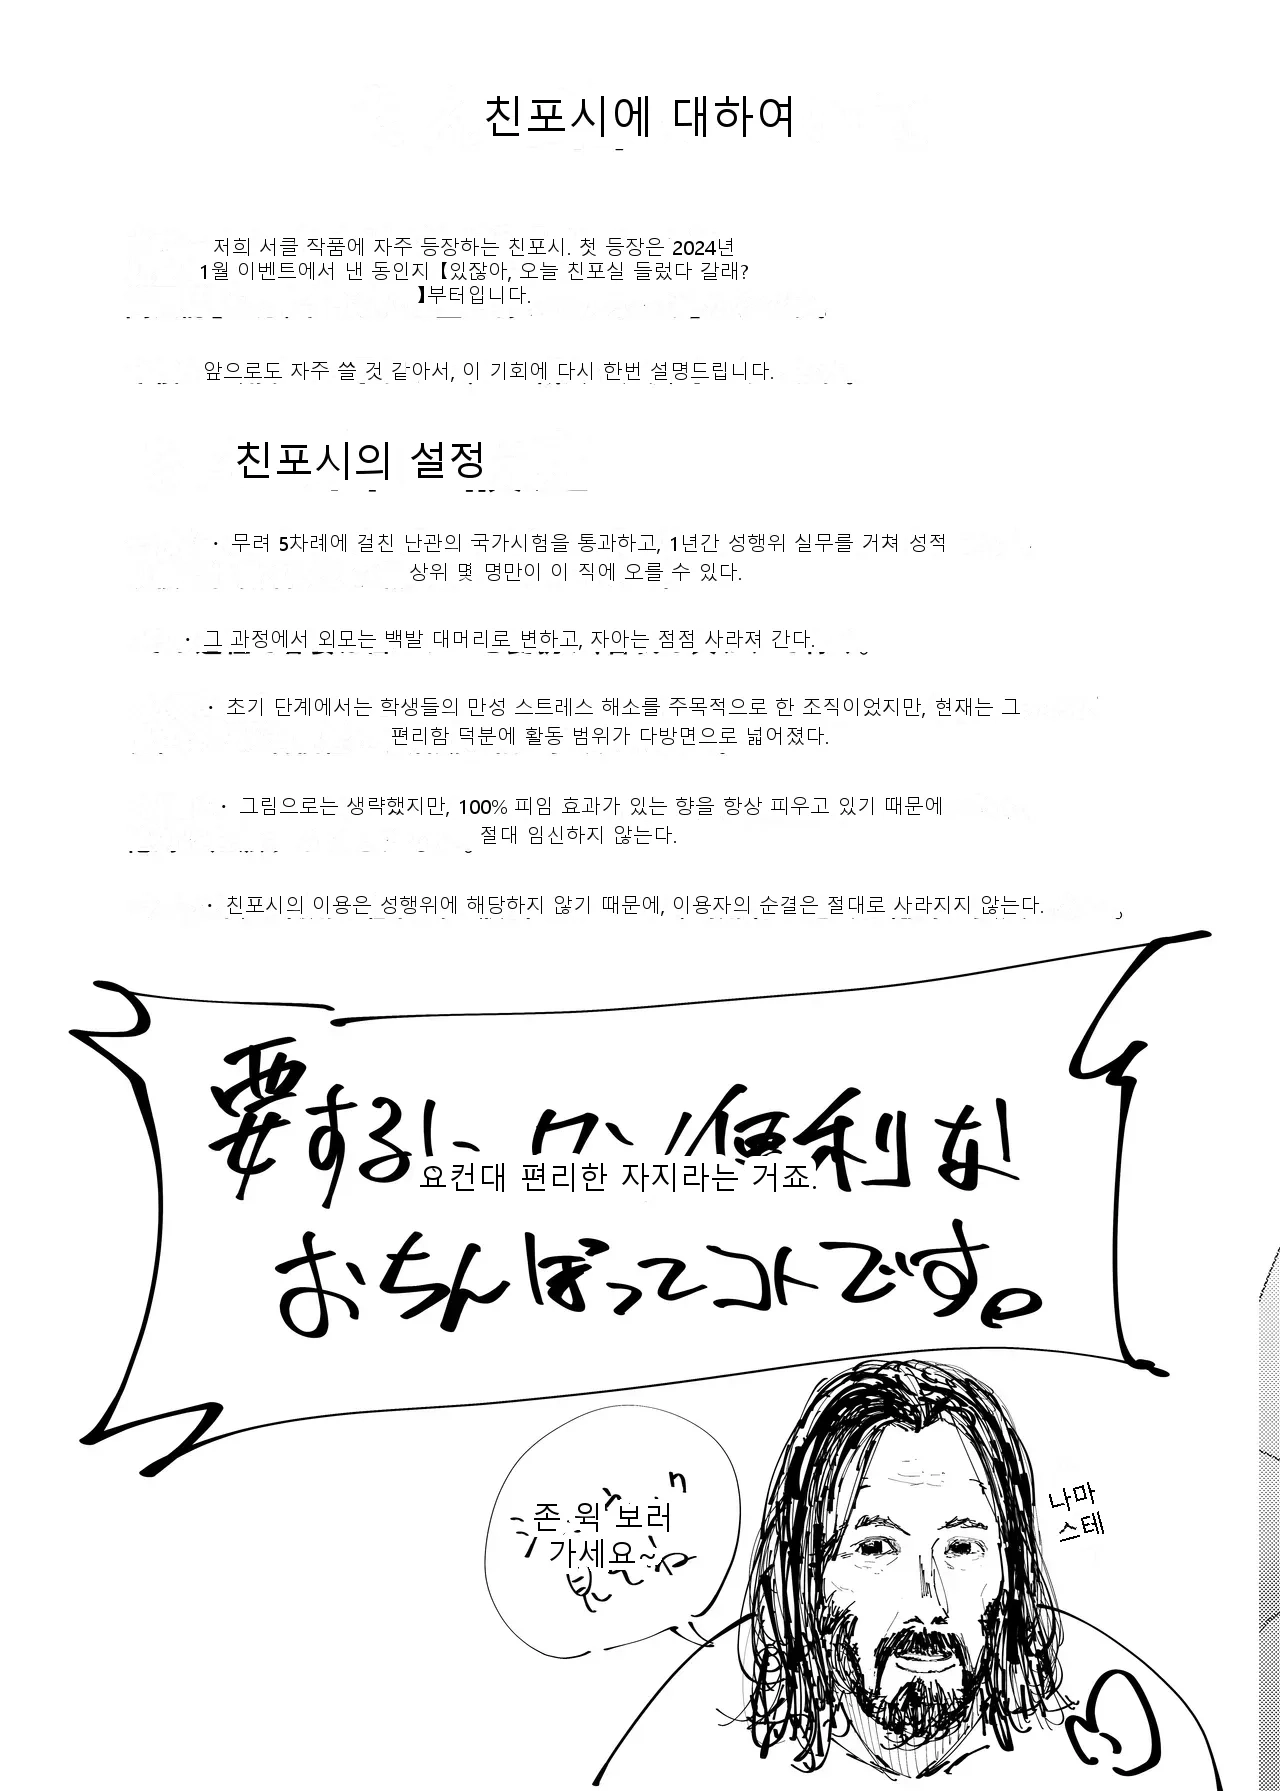 친포시에 대하여
저희 서클 작품에 자주 등장하는 친포시. 첫 등장은 2024년
1월 이벤트에서 낸 동인지【있잖아, 오늘 친포실 들렀다 갈래?
】부터입니다.
앞으로도 자주 쓸 것 같아서, 이 기회에 다시 한번 설명드립니다.
친포시의 설정
· 무려 5차례에 걸친 난관의 국가시험을 통과하고, 1년간 성행위 실무를 거쳐 성적
상위 몇 명만이 이 직에 오를 수 있다.
· 그 과정에서 외모는 백발 대머리로 변하고, 자아는 점점 사라져 간다.
· 초기 단계에서는 학생들의 만성 스트레스 해소를 주목적으로 한 조직이었지만, 현재는 그
편리함 덕분에 활동 범위가 다방면으로 넓어졌다.
· 그림으로는 생략했지만, 100% 피임 효과가 있는 향을 항상 피우고 있기 때문에
절대 임신하지 않는다.
· 친포시의 이용은 성행위에 해당하지 않기 때문에, 이용자의 순결은 절대로 사라지지 않는다.
要するに 便利な
요컨대 편리한 자지라는 거죠.
おちんぽってコトです。
존 윅 보러
가세요~
나마
스테